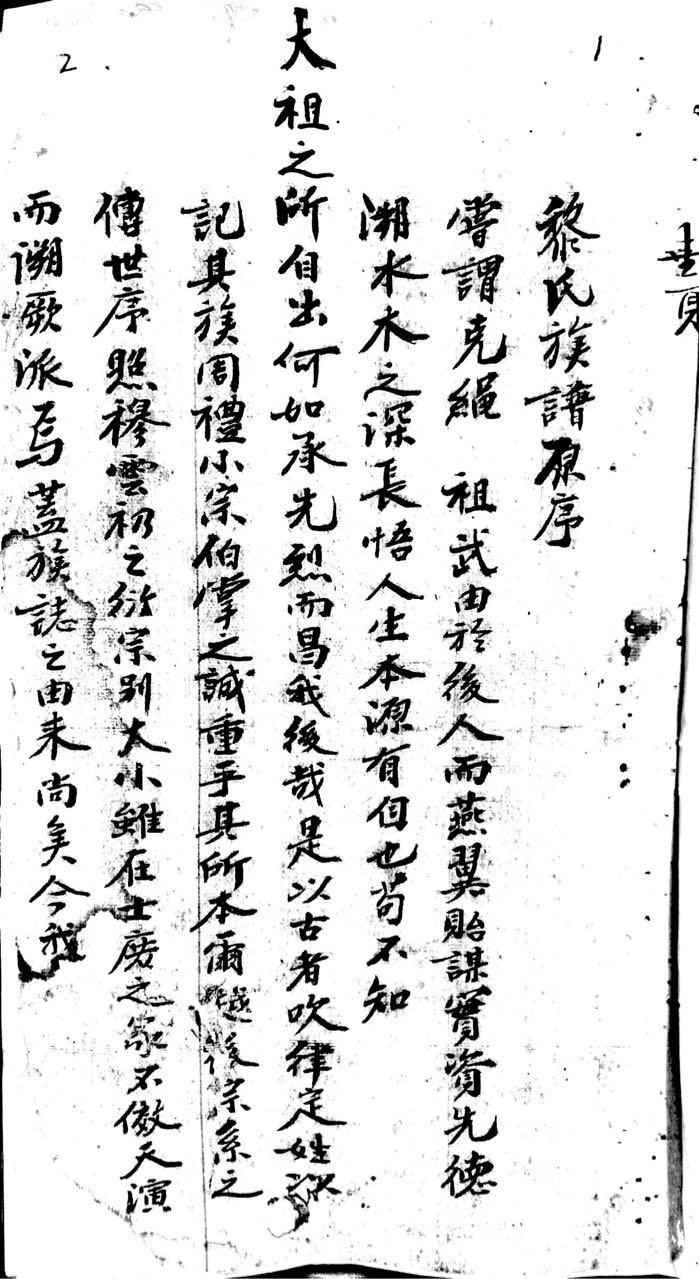 1
黎氏族譜原序
嘗謂克繩 祖武由於後人而燕翼貽謀實資先德
溯水木之深長悟人生本源有自也苟不知
大祖之所自出何如承先烈而昌我後哉是以古者吹律定姓
記其族周禮小宗伯掌之誠重乎其所本爾 後宗系之
2
傳世序照穆雲礽之衍宗别大小雖在士庶之家不倣天演
而溯厥派焉蓋族誌之由来尚矣今我